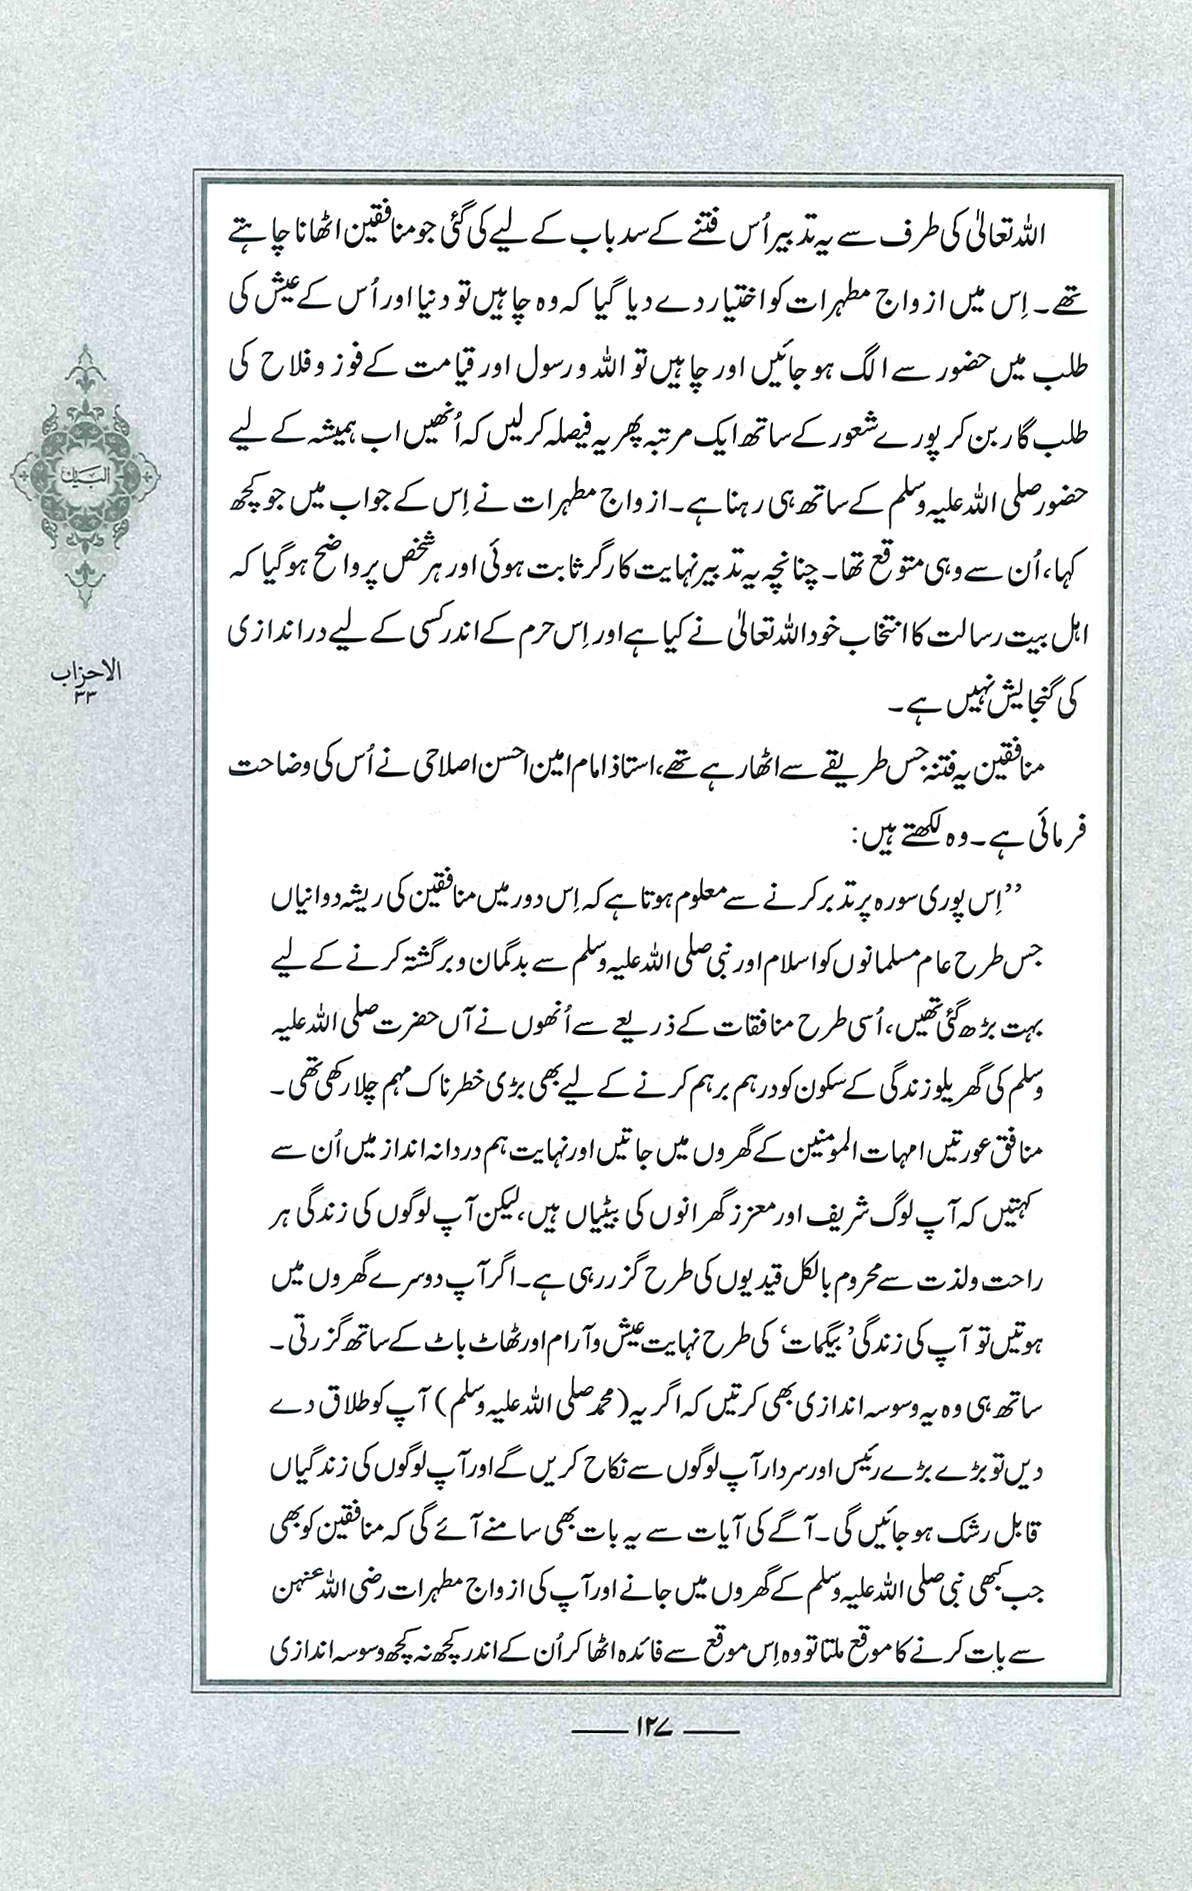 اللہ تعالیٰ کی طرف سے یہ تدبیر اُس فتنے کے سدباب کے لیے کی گئی جو منافقین اٹھانا چاہتے
تھے۔ اِس میں ازواج مطہرات کو اختیار دے دیا گیا کہ وہ چاہیں تو دنیا اور اُس کے عیش کی
طلب میں حضور سے الگ ہو جائیں اور چاہیں تو اللہ و رسول اور قیامت کے فوز و فلاح کی
طلب گار بن کر پورے شعور کے ساتھ ایک مرتبہ پھر یہ فیصلہ کر لیں کہ اُنھیں اب ہمیشہ کے لیے
حضور صلی اللہ علیہ وسلم کے ساتھ ہی رہنا ہے۔ ازواج مطہرات نے اِس کے جواب میں جو کچھ
کہا، اُن سے وہی متوقع تھا۔ چنانچہ یہ تدبیر نہایت کارگر ثابت ہوئی اور ہر شخص پر واضح ہو گیا کہ
اہل بیت رسالت کا انتخاب خود اللہ تعالیٰ نے کیا ہے اور اِس حرم کے اندر کسی کے لیے در اندازی
کی گنجایش نہیں ہے۔
منافقین یہ فتنہ جس طریقے سے اٹھا رہے تھے، استاذ امام امین احسن اصلاحی نے اُس کی وضاحت
فرمائی ہے۔ وہ لکھتے ہیں:
’’اِس پوری سورہ پر تدبر کرنے سے معلوم ہوتا ہے کہ اِس دور میں منافقین کی ریشہ دوانیاں
جس طرح عام مسلمانوں کو اسلام اور نبی صلی اللہ علیہ وسلم سے بدگمان و برگشتہ کرنے کے لیے
بہت بڑھ گئی تھیں، اُسی طرح منافقات کے ذریعے سے اُنھوں نے آں حضرت صلی اللہ علیہ
وسلم کی گھریلو زندگی کے سکون کو درہم برہم کرنے کے لیے بھی بڑی خطرناک مہم چلا رکھی تھی۔
منافق عورتیں امہات المومنین کے گھروں میں جاتیں اور نہایت ہم دردانہ انداز میں اُن سے
کہتیں کہ آپ لوگ شریف اور معزز گھرانوں کی بیٹیاں ہیں، لیکن آپ لوگوں کی زندگی ہر
راحت ولذت سے محروم بالکل قیدیوں کی طرح گزر رہی ہے۔ اگر آپ دوسرے گھروں میں
ہوتیں تو آپ کی زندگی ’بیگمات‘ کی طرح نہایت عیش و آرام اور ٹھاٹ باٹ کے ساتھ گزرتی۔
ساتھ ہی وہ یہ وسوسہ اندازی بھی کرتیں کہ اگر یہ (محمد صلی اللہ علیہ وسلم) آپ کو طلاق دے
دیں تو بڑے بڑے رئیس اور سردار آپ لوگوں سے نکاح کریں گے اور آپ لوگوں کی زندگیاں
قابل رشک ہو جائیں گی۔ آگے کی آیات سے یہ بات بھی سامنے آئے گی کہ منافقین کو بھی
جب کبھی نبی صلی اللہ علیہ وسلم کے گھروں میں جانے اور آپ کی ازواج مطہرات رضی اللہ عنہن
سے بات کرنے کا موقع ملتا تو وہ اِس موقع سے فائدہ اٹھا کر اُن کے اندر کچھ نہ کچھ وسوسہ اندازی
البیان
الاحزاب
۳۳
۱۲۷